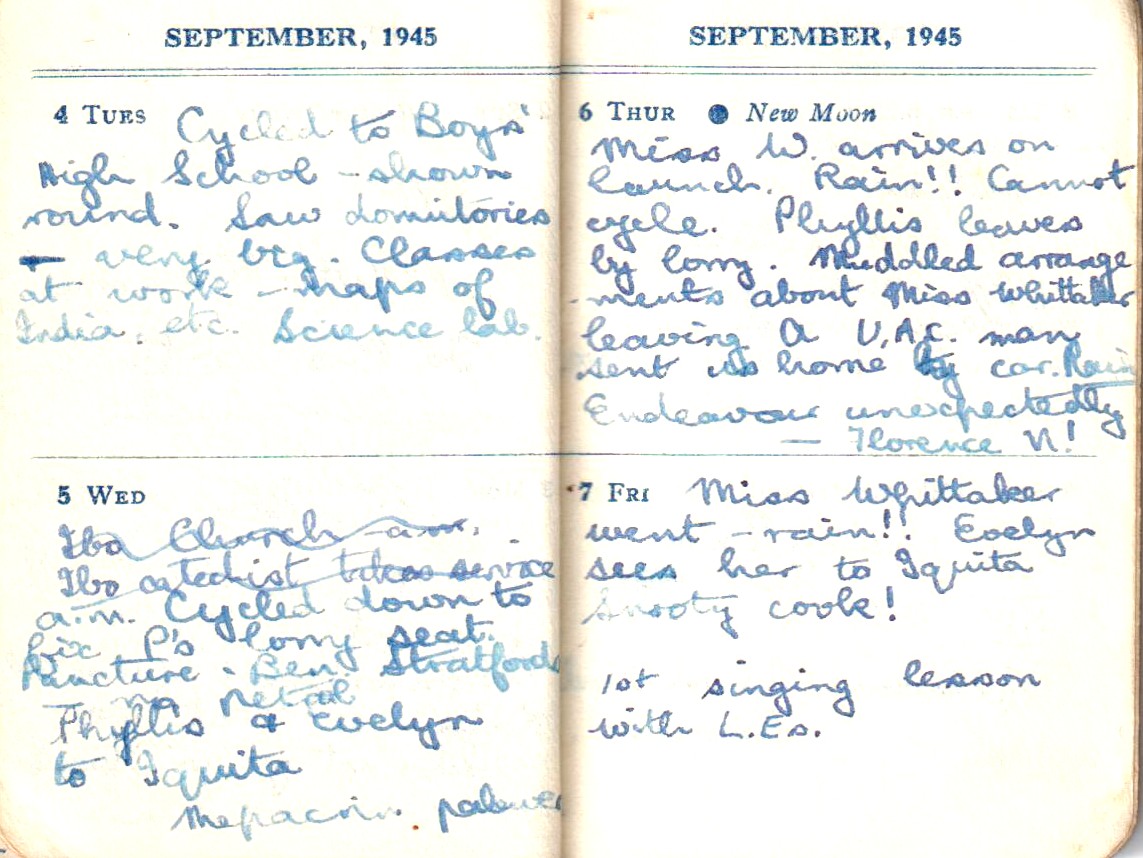 SEPTEMBER, 1945
4 TUES Cycled to Boys'
High School - shown
round. Saw domitories
- very big. Classes
at work - maps of
India, etc. Science lab.
5 WED
Ibo Church a.m.
Ibo catechist takes service
a.m. Cycled down to
fix P's lorry seat.
Puncture - Ben Stratfords
- no petrol
Phyllis & Evelyn
to Iquita
Mepacrin palaver
SEPTEMBER, 1945
6 THUR New Moon
Miss W. arrives on
launch. Rain!! Cannot
cycle. Phyllis leaves
by lorry. Muddled arrange
-ments about Miss Whittaker
leaving A U.A.C. man
sent us home by car. Rain
Endeavour unexpectedly
- Florence N!
7 FRI Miss Whittaker
went - rain!! Evelyn
sees her to Iquita
Snooty cook!
1st singing lesson
with L.Es.